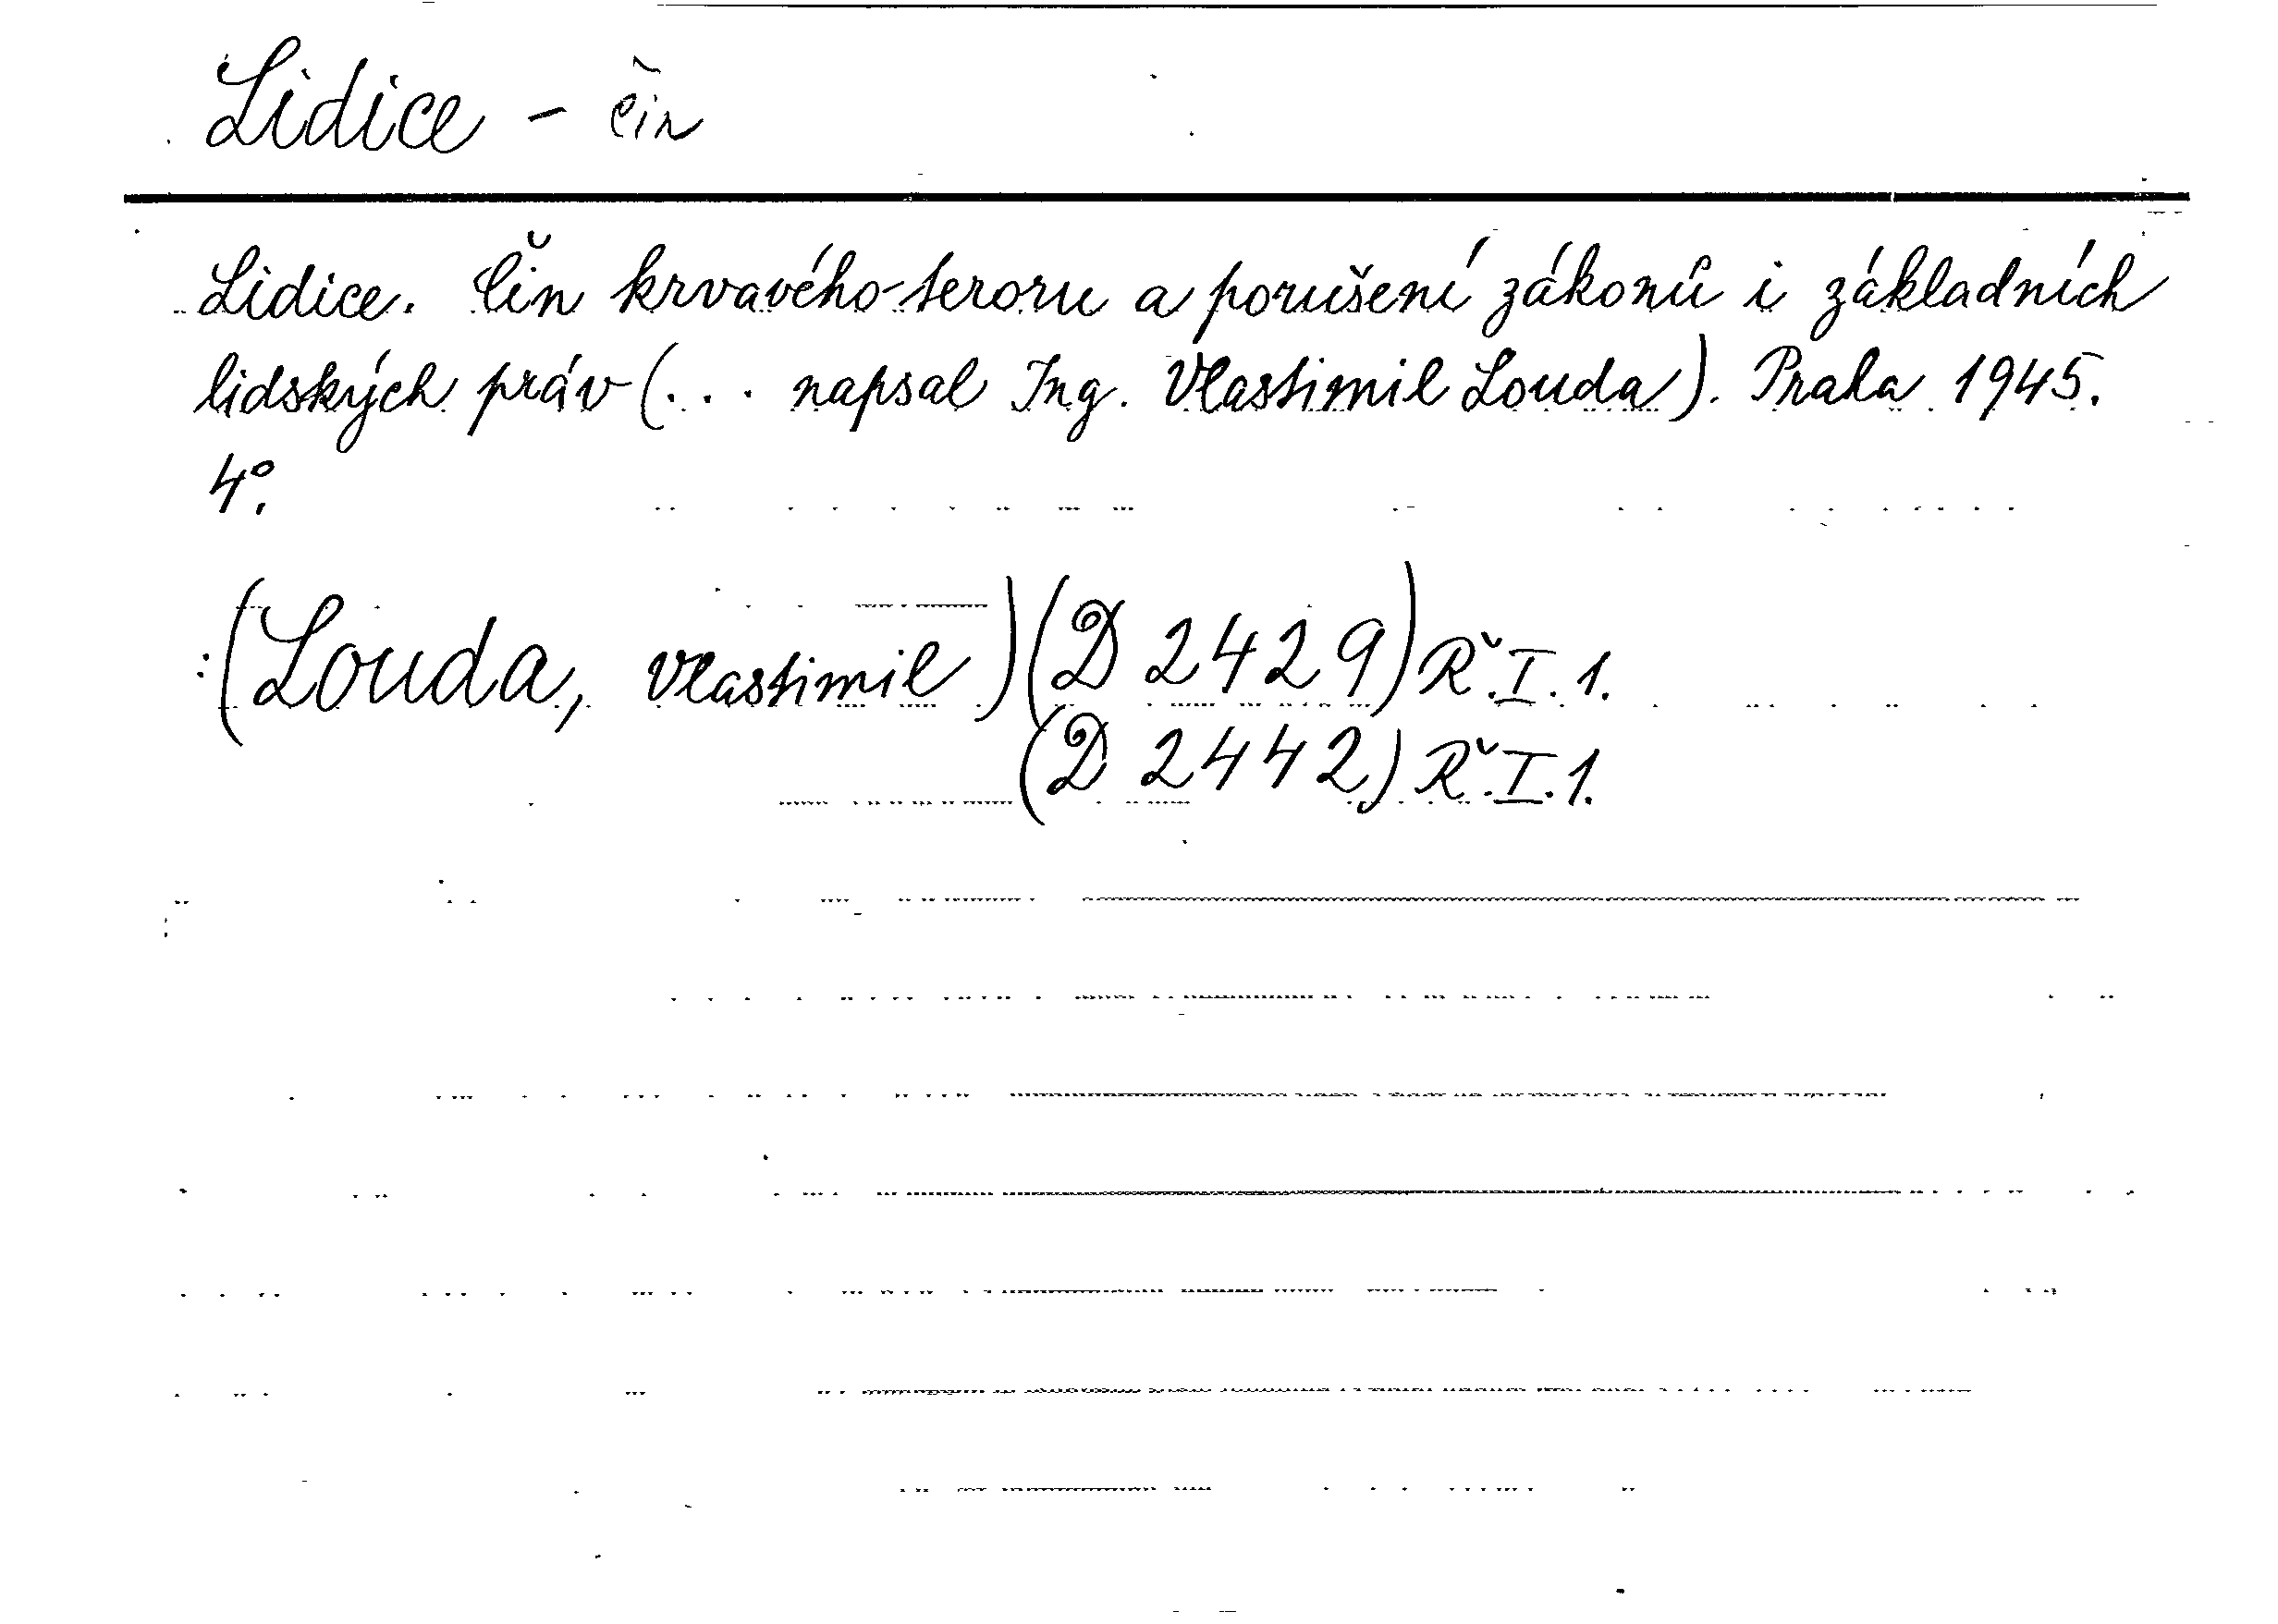 Lidice - čin
Lidice. Čin krvavého teroru a porušení zákonů i základních
lidských práv (... napsal Ing. Vlastimil Louda). Praha 1945.
4°.
:(Louda, Vlastimil)(D 2429) Ř.I.1.
(D 2442) Ř.I.1.